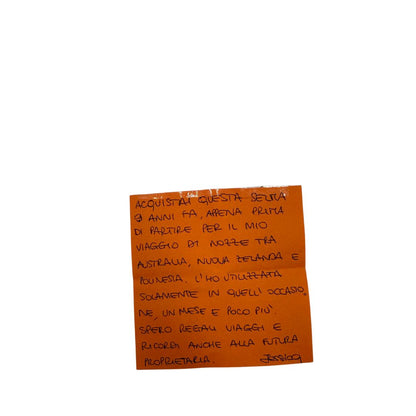 ACQUISTAI QUESTA
9 ANNI FA, APPENA PRIMA
DI PARTIRE PER IL MIO
VIAGGIO DI NOZZE TRA
AUSTRALIA, NUOVA ZELANDA E
POLINESIA. L'HO UTILIZZATA
SOLAMENTE IN QUELL'OCCASIO
NE, UN MESE E POCO PIU'.
SPERO REGALI VIAGGI E
RICORDI ANCHE ALLA FUTURA
PROPRIETARIA. Jessica